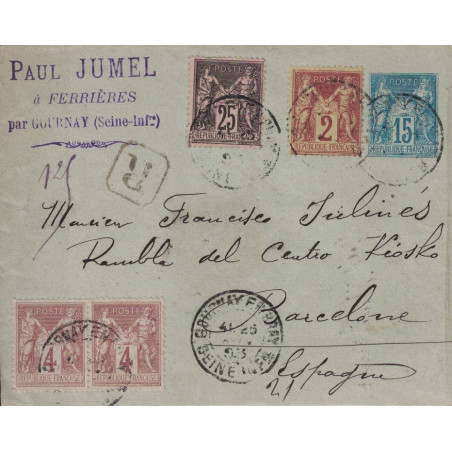 PAUL JUMEL
à FERRIÈRES
par GOURNAY (Seine-Infre)
POSTE
25
REPUBLIQUE FRANÇAISE
POSTE
2
REPUBLIQUE FRANÇAISE
POSTE
15
REPUBLIQUE FRANÇAISE
R
125
Monsieur Francisco
Rambla del Centro Kiosko
Barcelone
Espagne
21
POSTE
4
REPUBLIQUE FRANÇAISE
POSTE
4
REPUBLIQUE FRANÇAISE
GOURNAY EN BRAY
25
93
SEINE INFRE